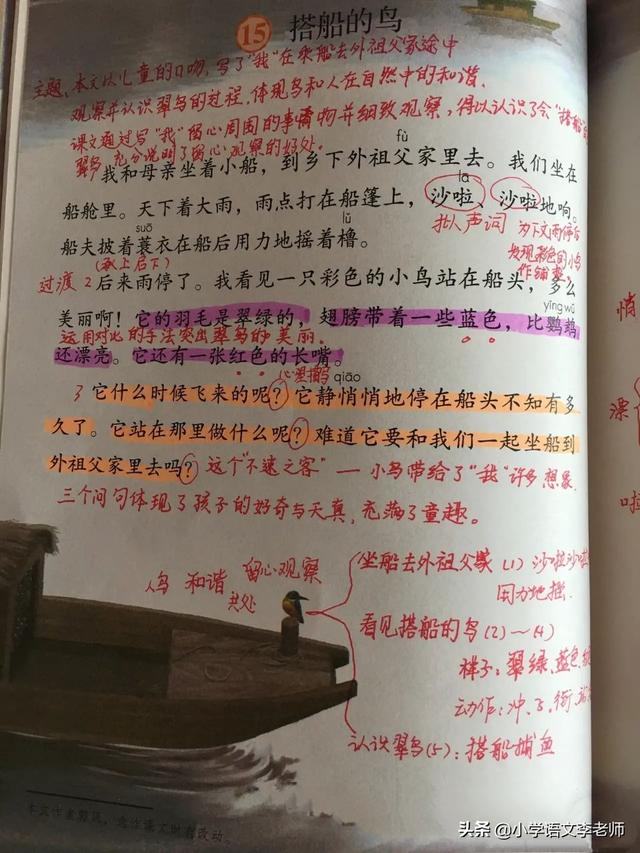 15 搭船的鸟
主题、本文以儿童的口吻,写了"我"在乘船去外祖父家途中
观察并认识翠鸟的过程,体现鸟和人在自然中的和谐.
课文通过写"我"留心周围的事情物并细致观察,得以认识了会"搭船"
翠鸟,充分说明了留心观察的好处。
fù
我和母亲坐着小船,到乡下外祖父家里去。我们坐在
la
船舱里。天下着大雨,雨点打在船篷上,沙啦、沙啦地响。
suō lǔ
船夫披着蓑衣在船后用力地摇着橹。
拟人声词 为下文雨停后
发现彩色的小鸟
作铺垫
(承上启下)
过渡 2 后来雨停了。我看见一只彩色的小鸟站在船头,多么
yīng wǔ
美丽啊!它的羽毛是翠绿的,翅膀带着一些蓝色,比鹦鹉
运用对比的手法突出翠鸟的美丽.
还漂亮。它还有一张红色的长嘴。
心里描写
qiāo
3 它什么时候飞来的呢?它静悄悄地停在船头不知有多
久了。它站在那里做什么呢?难道它要和我们一起坐船到
外祖父家里去吗?这个"不速之客"一小鸟带给了"我"许多想象.
三个问句体现了孩子的好奇与天真,充满了童趣。
人鸟 和谐 共处 留心观察
坐船去外祖父家 (1) 沙啦沙啦
用力地摇.
看见搭船的鸟(2)~(4)
样子:翠绿、蓝色、
动作:冲、飞、衔、
认识翠鸟(5):搭船捕鱼
本文作者郭风,选作课文时有改动。
悄
漂
啦
头条 @小学语文李老师